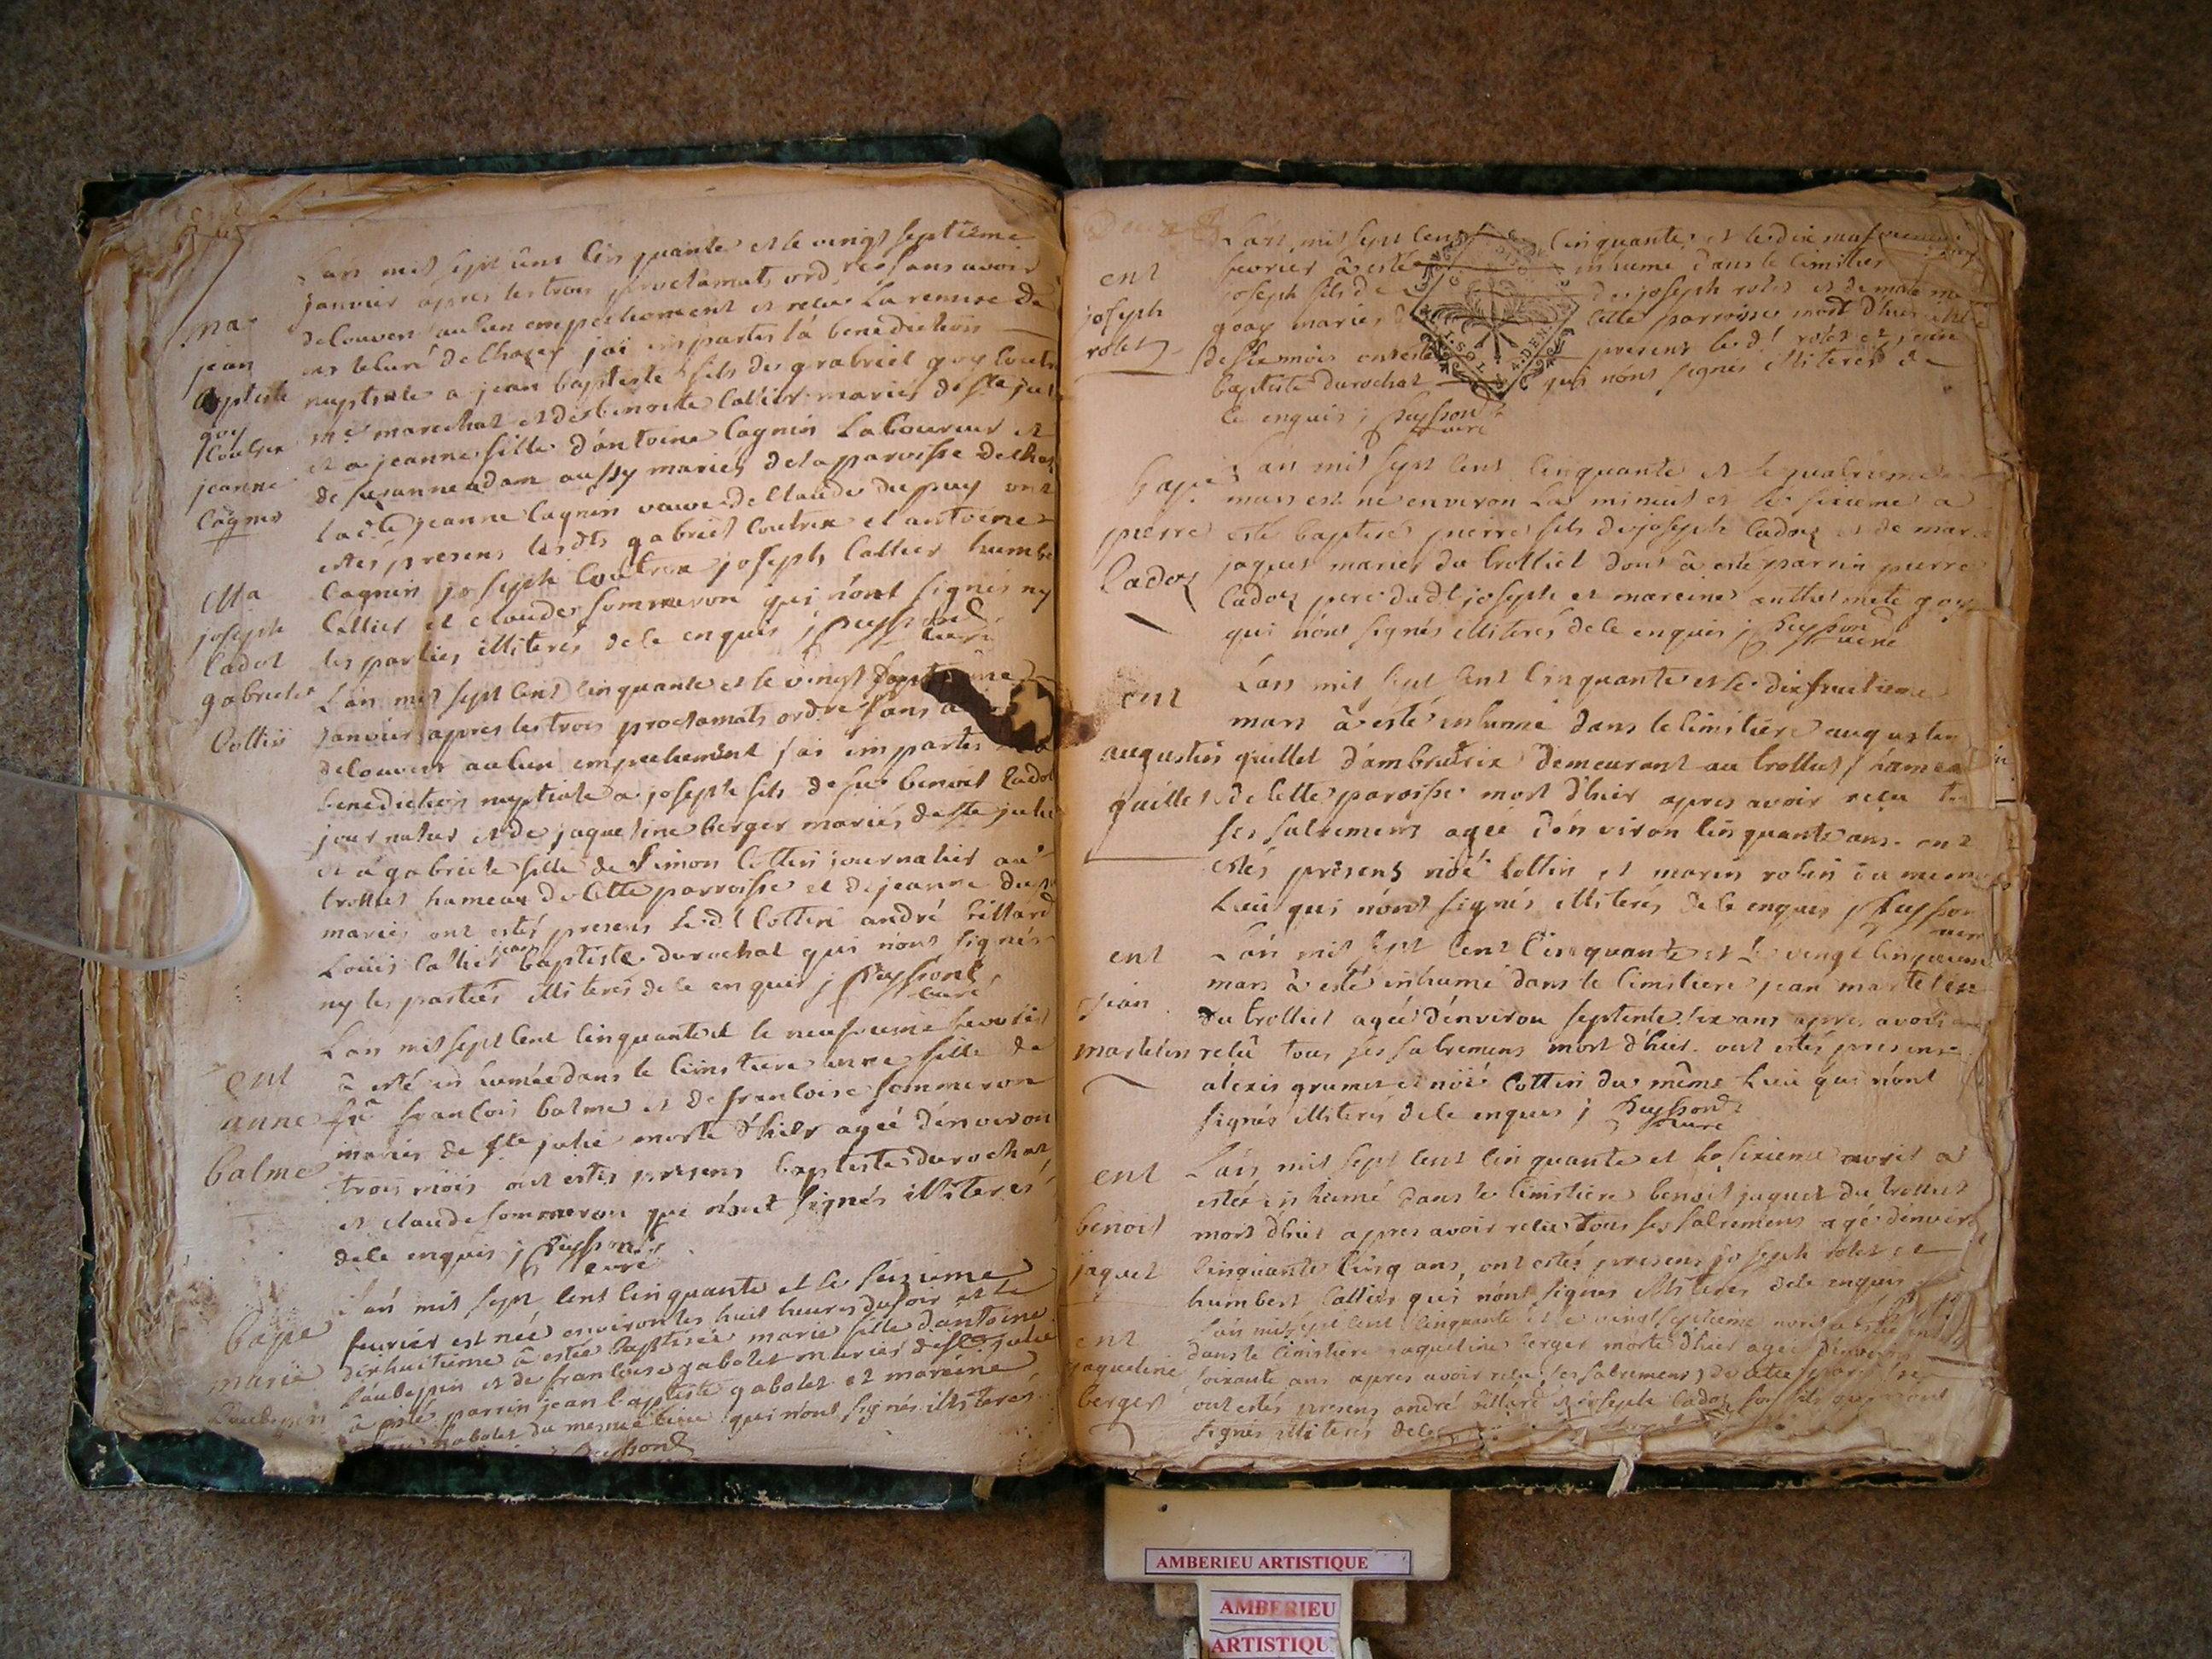 L'an mil sept cens cinquante et le vingt septieme
janvier apres les trois proclamats ord. res sans avoir
decouvert aucun empechement et receu la remise de
mr le curé de Chazey j'ai impartis la benediction
nuptiale a jean baptiste fils de gabriel goy
me marechal et de benoite Collier mariés de Ste julie
et a jeanne fille d'antoine Cagnin laboureur et
de susanne adam aussy mariés de la paroisse de Chaz
ladte jeanne Cagnin veuve de Claude du puy ont
estés presens lesdts gabriel Coutrix et antoine
Cagnin joseph Coutrix joseph Collier humbe
Collier et claude Sommeron qui n'ont signés ny
les parties illiterés de ce enquis j Peysson
curé
mar
jean
baptiste
goy
Coutrix
jeanne
Cagnin
L'an mil sept cent cinquante et le vingt
janvier apres les trois proclamats ordre sans
decouvert aucun empechement j'ai impartis
benediction nuptiale a joseph fils de feu benoit Cadot
journalier et de jaqueline berger mariés de Ste julie
et a gabriele fille de Simon Cottin journalier au
trolliet hameau de cette parroisse et de jeanne
mariés ont estés presens ledt Cottin andré billard
Louis Collier jean baptiste durochat qui n'ont signés
ny les parties illiterés de ce enquis j Peysson
curé
Ma
joseph
Cadot
gabriele
Cottin
L'an mil sept cent cinquante et le neufvieme fevrier
à esté inhumée dans le cimitiere anne fille de
françois balme et de françoise sommeron
mariés de Ste julie morte d'hier agée d'environ
trois mois ont estés presens baptiste durochat
et claude sommeron qui n'ont signés illiterés
de ce enquis j Peysson
curé
ent
anne
balme
L'an mil sept cent cinquante et le seizieme
fevrier est née environ les huit heures du soir et le
dixhuitieme à estée baptisée marie fille d'antoine
Laubepin et de françoise gabolet mariés de Ste julie
à estés parrin jean baptiste gabolet et mareine
gabolet du mesme lieu qui n'ont signés illiterés
Peysson
bape
marie
Laubepin
L'an mil sept cent cinquante et le dix
fevrier à esté inhumé dans le cimitier
joseph fils de joseph rolet et de
goay mariés cette parroisse mort d'hier
de six mois ont esté presens led! rolet et jean
baptiste durochat qui n'ont signés illiterés de
ce enquis j Peysson
curé
ent
joseph
rolet
L'an mil sept cent cinquante et le quatrieme
mars est né environ la minuit et le sixieme a
esté baptisé pierre fils de joseph Cadoz et de mar
jaquet mariés du trolliet dont à esté parrin pierre
Cadoz pere dudt joseph et mareine goy
qui n'ont signés illiterés de ce enquis j Peysson
curé
bape
pierre
Cadoz
L'an mil sept cent cinquante et le dixhuitieme
mars à esté inhumé dans le cimitiere augustin
guillet d'ambutrix demeurant au trolliet hameau
de cette paroisse mort d'hier apres avoir receu
ses sacremens agée d'environ cinquante ans. ont
estés présens Cottin et marin robin du mesme
Lieu qui n'ont signés illiterés de ce enquis j Peysson
ent
augustin
guillet
L'an mil sept cent cinquante et le vingt cinquieme
mars à esté inhumé dans le cimitiere jean martelin
du trolliet agée d'environ septente six ans apres avoir
receü tous ses sacremens mort d'hier. ont estés presens
aléxis grumet et Cottin du même Lieu qui n'ont
signés illiterés de ce enquis j Peysson
curé
ent
jean
martelin
L'an mil sept cent cinquante et le sixieme avril a
estée inhumé dans le cimitiere benoit jaquet du trolliet
mort d'hier apres avoir receu tous ses sacremens agé d'environ
cinquante cinq ans, ont estés presens joseph rolet et
humbert Collier qui n'ont signés illiterés de ce enquis
ent
benoit
jaquet
L'an mil sept cent cinquante et le vingt septieme avril a estée
dans le cimitiere jaqueline berger morte d'hier agée d'environ
soixante ans apres avoir receu ses sacremens de cette paroisse
ont estés presens andré billard et joseph Cadoz son fils qui n'ont
signés illiterés de ce
ent
jaqueline
berger
AMBERIEU ARTISTIQUE
AMBERIEU
ARTISTIQU